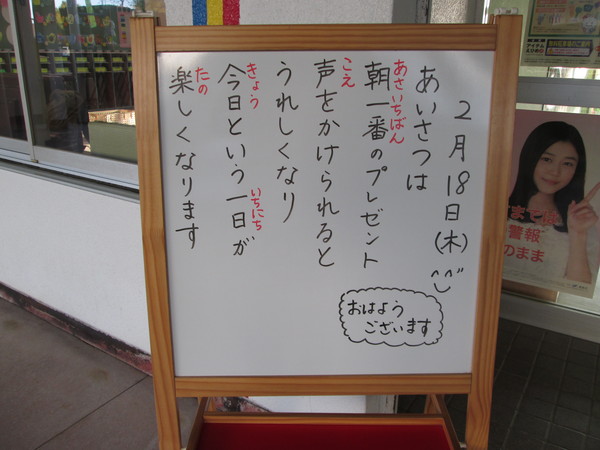 2月18日(木)^^
あいさつは
朝一番のプレゼント
あさいちばん
声をかけられると
こえ
うれしくなり
今日という一日が
きょう
いちにち
楽しくなります
たの
おはよう
ございます
警報
のまま